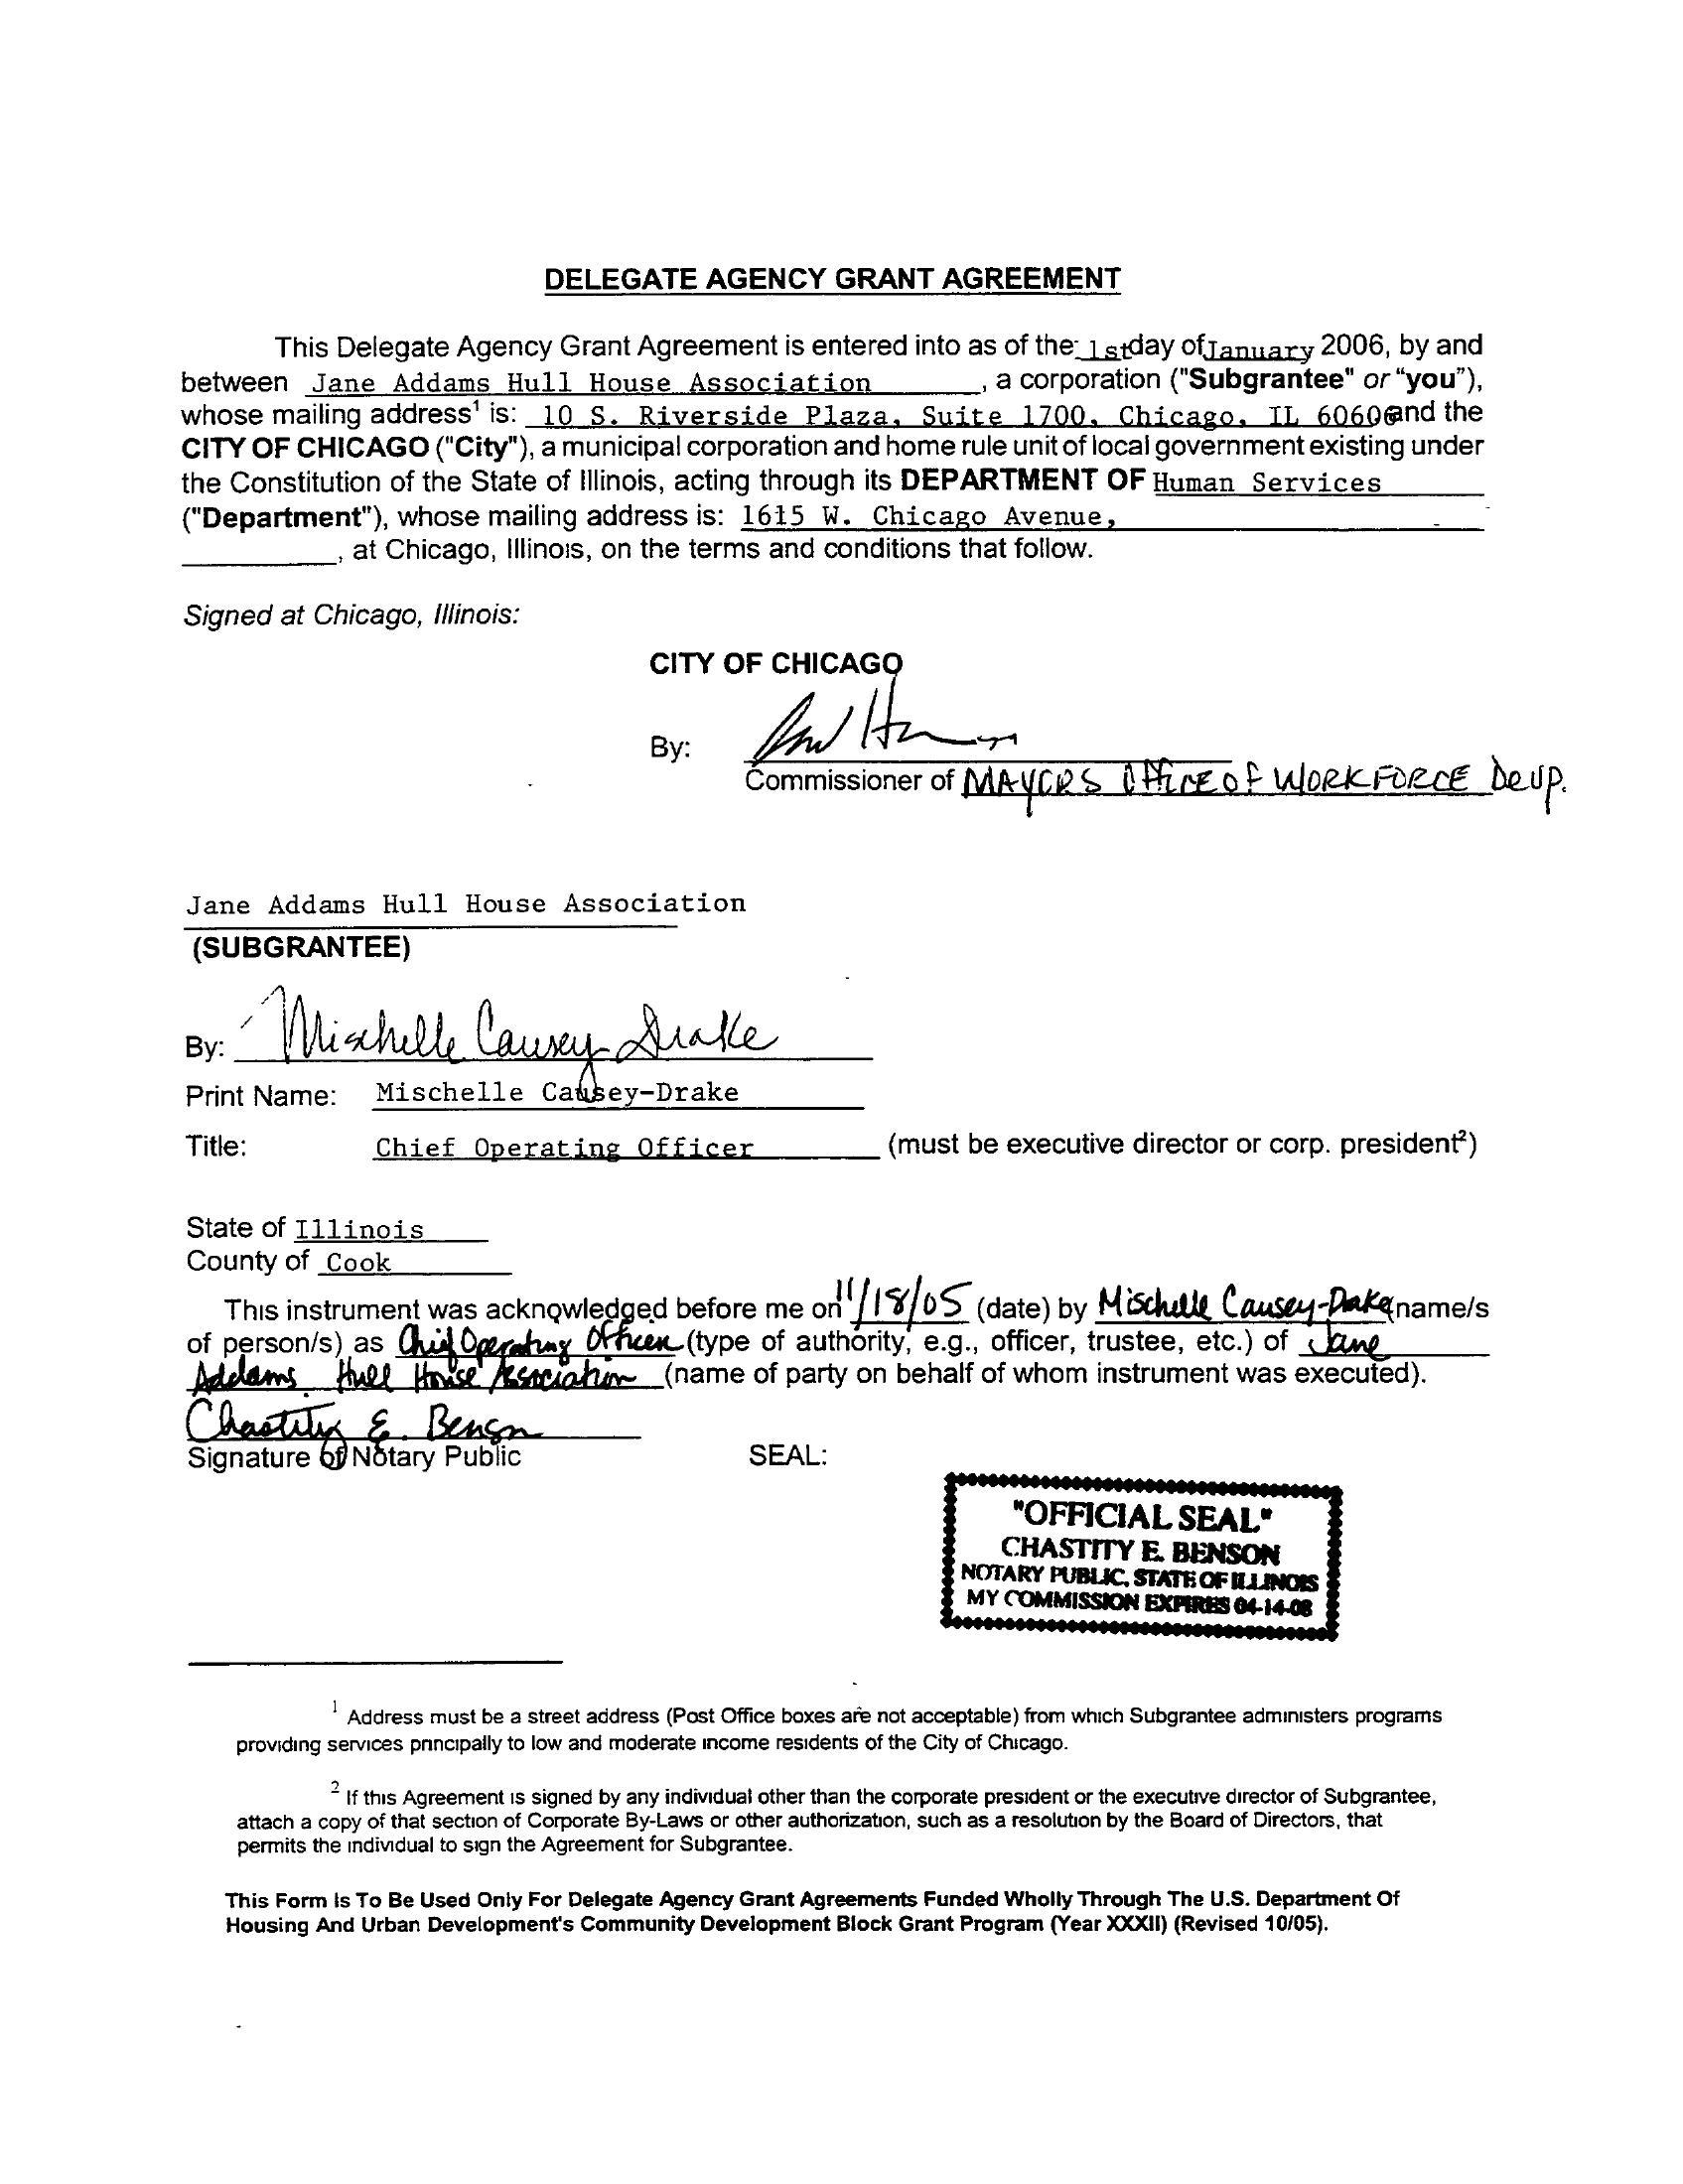 DELEGATE AGENCY GRANT AGREEMENT
This Delegate Agency Grant Agreement is entered into as of the 1st day of January 2006, by and
between Jane Addams Hull House Association , a corporation ("Subgrantee" or "you"),
whose mailing address¹ is: 10 S. Riverside Plaza, Suite 1700, Chicago, IL 60606 and the
CITY OF CHICAGO ("City"), a municipal corporation and home rule unit of local government existing under
the Constitution of the State of Illinois, acting through its DEPARTMENT OF Human Services
("Department"), whose mailing address is: 1615 W. Chicago Avenue,
, at Chicago, Illinois, on the terms and conditions that follow.
Signed at Chicago, Illinois:
CITY OF CHICAGO
By:
Commissioner of MAYORS OFFICE OF WORKFORCE Devp.
Jane Addams Hull House Association
(SUBGRANTEE)
By: Mischelle Causey-Drake
Print Name: Mischelle Causey-Drake
Title: Chief Operating Officer (must be executive director or corp. president²)
State of Illinois
County of Cook
This instrument was acknowledged before me on 11/18/05 (date) by Mischelle Causey-Drake (name/s
of person/s) as Chief Operating Officer (type of authority, e.g., officer, trustee, etc.) of Jane
Addams Hull House Association (name of party on behalf of whom instrument was executed).
Chastity E. Benson
Signature of Notary Public SEAL:
"OFFICIAL SEAL"
CHASTITY E. BENSON
NOTARY PUBLIC, STATE OF ILLINOIS
MY COMMISSION EXPIRES 04-14-08
¹ Address must be a street address (Post Office boxes are not acceptable) from which Subgrantee administers programs
providing services principally to low and moderate income residents of the City of Chicago.
² If this Agreement is signed by any individual other than the corporate president or the executive director of Subgrantee,
attach a copy of that section of Corporate By-Laws or other authorization, such as a resolution by the Board of Directors, that
permits the individual to sign the Agreement for Subgrantee.
This Form Is To Be Used Only For Delegate Agency Grant Agreements Funded Wholly Through The U.S. Department Of
Housing And Urban Development's Community Development Block Grant Program (Year XXXII) (Revised 10/05).